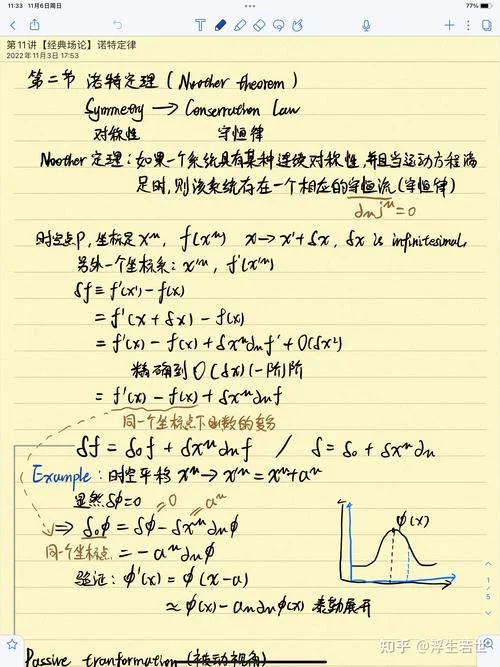 11:33 11月6日周日
77%
第11讲【经典场论】诺特定律
2022年11月3日 17:53
第二节 诺特定理 (Noether theorem)
Symmetry → Conservation Law
对称性 守恒律
Noether 定理：如果一个系统具有某种连续对称性，并且当运动方程满
足时，则该系统存在一个相应的守恒流 (守恒律)
∂μ j^μ = 0
时空点 P，坐标是 x^μ， f(x^μ) x → x'+δx, δx is infinitesimal.
另外一个坐标系：x'^μ, f'(x'^μ)
δf ≡ f'(x') - f(x)
= f'(x + δx) - f(x)
= f'(x) - f(x) + δx^μ ∂μ f' + O(δx²)
精确到 O(δx) (一阶) 阶
= f'(x) - f(x) + δx^μ ∂μ f
同一个坐标点下函数的变分
δf = δ₀f + δx^μ ∂μ f / δ = δ₀ + δx^μ ∂μ
Example：时空平移 x^μ → x'^μ = x^μ + a^μ
显然 δϕ = 0 = 0 = a^μ
⇒ δ₀ϕ = δϕ - δx^μ ∂μ ϕ
同一个坐标点 = -a^μ ∂μ ϕ
ϕ(x)
验证：ϕ'(x) = ϕ(x-a)
≈ ϕ(x) - aμ ∂μ ϕ(x) 泰勒展开
1
5
知乎 @浮生若世
Passive tranformation (被动视角)